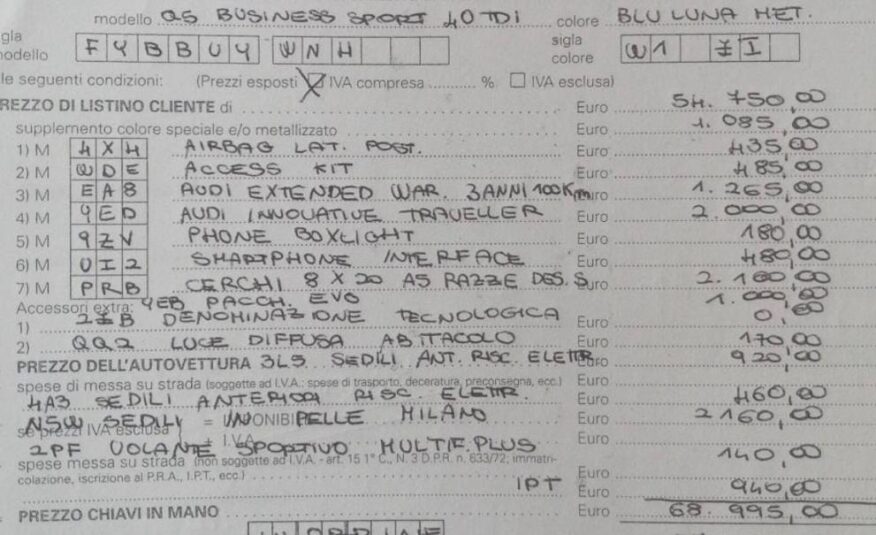 modello Q5 BUSINESS SPORT 40 TDI colore BLU LUNA MET.
sigla modello FYBBUY WNH sigla colore W1 ZI
le seguenti condizioni: (Prezzi esposti IVA compresa ........ % IVA esclusa)
PREZZO DI LISTINO CLIENTE di Euro 54.750,00
supplemento colore speciale e/o metallizzato Euro 1.085,00
1) M 4X4 AIRBAG LAT. POST. Euro 435,00
2) M WDE ACCESS KIT Euro 485,00
3) M EA8 AUDI EXTENDED WAR. 3ANNI 100Km Euro 1.265,00
4) M YED AUDI INNOVATIVE TRAVELLER Euro 2.000,00
5) M 9ZV PHONE BOXLIGHT Euro 180,00
6) M UI2 SMARTPHONE INTERFACE Euro 480,00
7) M PRB CERCHI 8 X 20 A5 RAZZE DES. S Euro 2.160,00
Accessori extra: YEB PACCH. EVO 1.000,00
1) 2ZB DENOMINAZIONE TECNOLOGICA Euro 0,00
2) QQ2 LUCE DIFFUSA ABITACOLO Euro 170,00
PREZZO DELL'AUTOVETTURA 3L3 SEDILI ANT. RISC. ELETTR Euro 920,00
spese di messa su strada (soggette ad I.V.A.: spese di trasporto, deceratura, preconsegna, ecc.) Euro
4A3 SEDILI ANTERIORI RISC. ELETTR. Euro 460,00
N5W SEDILI = PELLE MILANO Euro 2160,00
se prezzi IVA esclusa + I.V.A.
2PF VOLANTE SPORTIVO MULTIF. PLUS Euro 140,00
spese messa su strada (non soggette ad I.V.A. - art. 15 1° C., N. 3 D.P.R. n. 633/72; immatri-
colazione, iscrizione al P.R.A., I.P.T., ecc.) Euro
IPT Euro 940,00
PREZZO CHIAVI IN MANO Euro 68.995,00